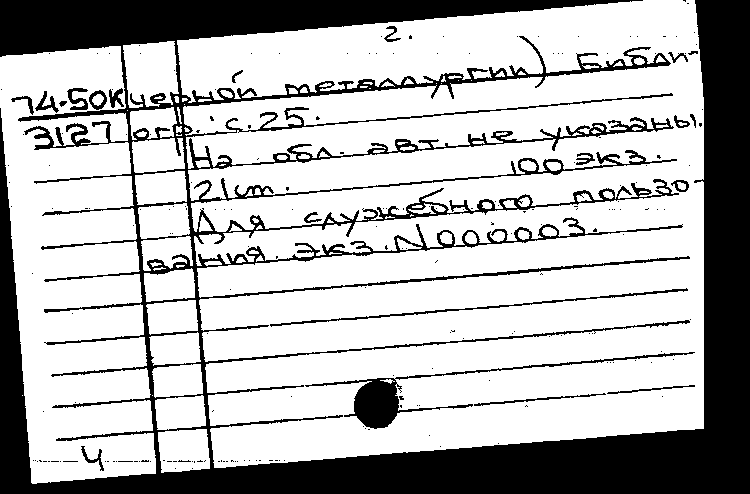 2.
74-50К черной металлургии) Библи-
3127 огр.: с.25.
На обл. авт. не указаны.
21 см. 100 экз.
Для служебного пользо-
вания. экз. N000003.
Ч